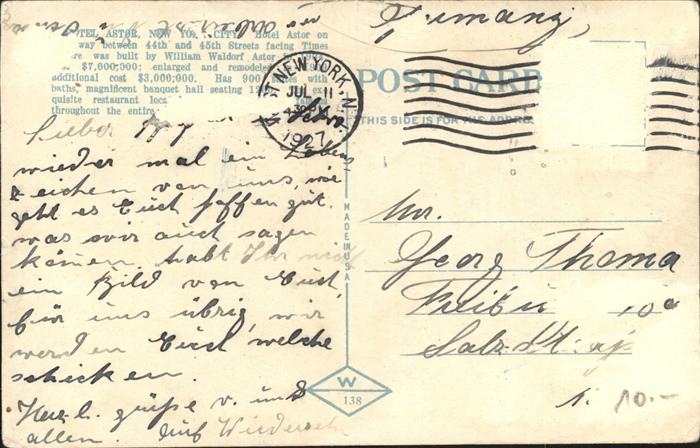 HOTEL ASTOR, NEW YORK CITY. Hotel Astor on
way between 44th and 45th Streets facing Times
was built by William Waldorf Astor
$7,000,000; enlarged and remodeled
additional cost $3,000,000. Has 900 with
baths, magnificent banquet hall seating
quisite restaurant
throughout the entire
Germany
NEW YORK, N.Y.
JUL 11
1927
POST CARD
THIS SIDE IS FOR THE ADDRESS
Lieber
wieder mal ein Lebens
zeichen von uns, wie
geht es Euch hoffen gut.
was wir auch sagen
können, habt Ihr nicht
ein Bild von Euch,
für uns übrig, wir
werden Euch welche
schicken.
Herzl. grüße v. uns
allen. Auf Wiedersehn
MADE IN USA
W
138
Mr.
Georg Thoma
10.-